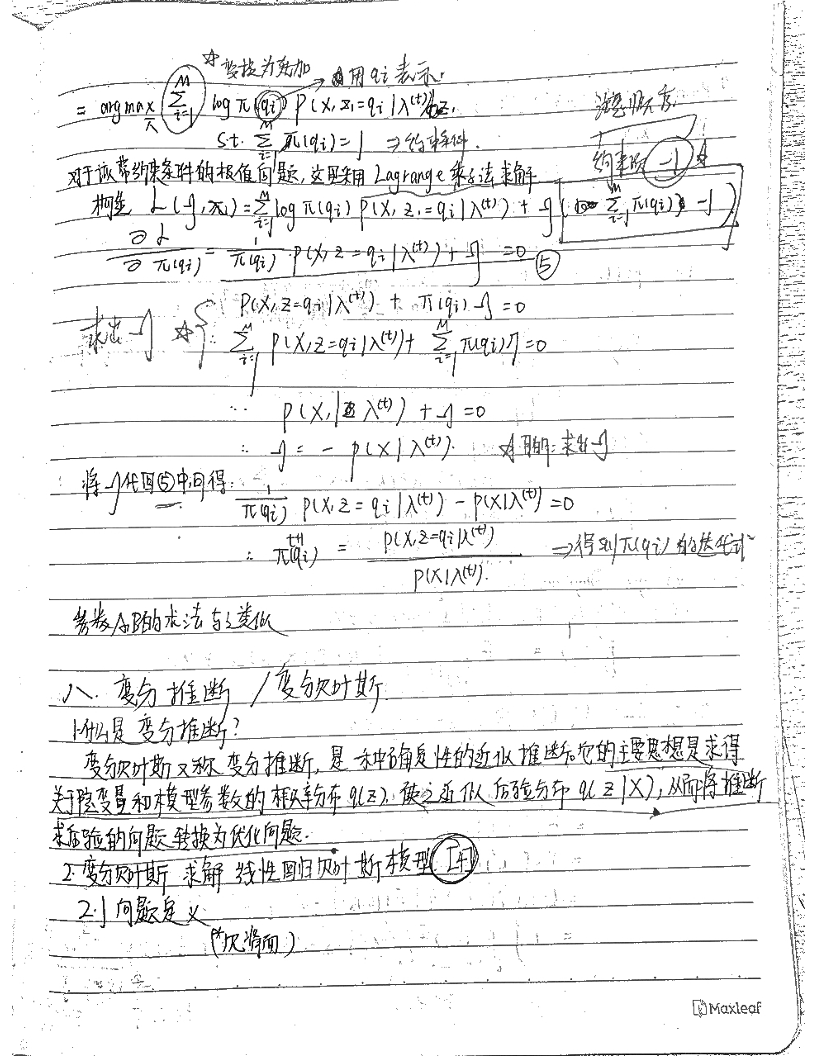 ☆变换为叠加 → 用 qi 表示.
= argmax_π Σ_{i=1}^{M} log π(qi) P(X, z₁=qi | λ^(t))
s.t. Σ_{i=1}^{M} π(qi) = 1 ⇒ 约束条件.
约束项 -1 ☆
对于该带约束条件的极值问题, 这里采用 Lagrange 乘子法求解
构建 L(η, π) = Σ_{i=1}^{M} log π(qi) P(X, z₁=qi | λ^(t)) + η ( Σ_{i=1}^{M} π(qi) - 1 )
∂L / ∂π(qi) = 1/π(qi) · P(X, z=qi | λ^(t)) + η = 0 ⑤
P(X, z=qi | λ^(t)) + π(qi) η = 0
求出 η ☆ { Σ_{i=1}^{M} P(X, z=qi | λ^(t)) + Σ_{i=1}^{M} π(qi) η = 0
∵ P(X | λ^(t)) + η = 0
∴ η = - P(X | λ^(t)). ☆目的: 求出 η
将 η 代回⑤中可得:
1/π(qi) P(X, z=qi | λ^(t)) - P(X | λ^(t)) = 0
∴ π^{t+1}(qi) = P(X, z=qi | λ^(t)) / P(X | λ^(t)). ⇒ 得到 π(qi) 的迭代式
参数 A, B 的求法与之类似
八、变分推断 / 变分贝叶斯
1. 什么是变分推断?
变分贝叶斯又称变分推断, 是一种确定性的近似推断。它的主要思想是求得
关于隐变量和模型参数的概率分布 q(z), 使之近似后验分布 q(z|X), 从而将推断
求后验的问题转换为优化问题.
2. 变分贝叶斯求解线性回归贝叶斯模型 [4]
2.1 问题定义
Maxleaf